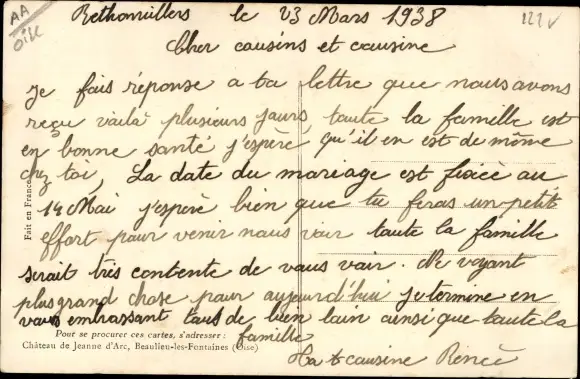 AA
Oise
122 v
Rethonvillers le 23 Mars 1938
Cher cousins et cousine
Je fais réponse a ta lettre que nous avons
reçu voilà plusieurs jours, toute la famille est
en bonne santé j'espère qu'il en est de même
chez toi, La date du mariage est fixée au
14 Mai j'espère bien que tu feras un petit
effort pour venir nous voir toute la famille
serait très contente de vous voir. Ne voyant
plus grand chose pour aujourd'hui je termine en
vous embrassant tous de bien loin ainsi que toute la
famille
Ta cousine Renée
Fait en France
Pour se procurer ces cartes, s'adresser :
Château de Jeanne d'Arc, Beaulieu-les-Fontaines (Oise)